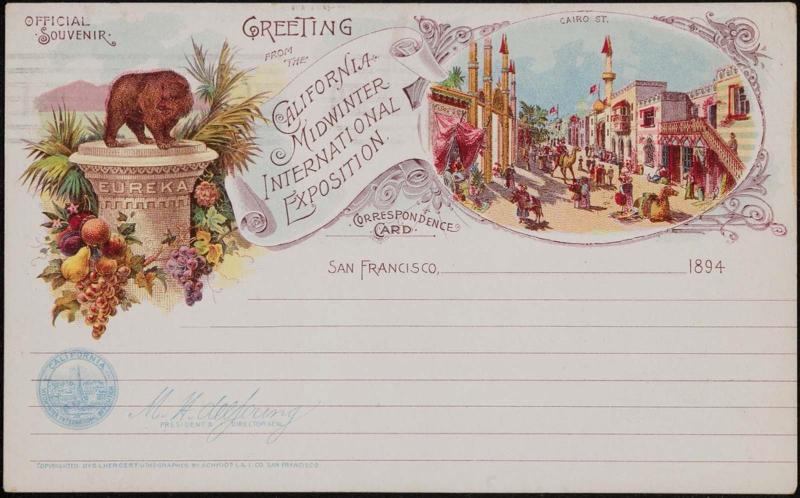 OFFICIAL
SOUVENIR.
GREETING
FROM
THE
CALIFORNIA
MIDWINTER
INTERNATIONAL
EXPOSITION.
CAIRO ST.
EUREKA
CORRESPONDENCE
CARD.
SAN FRANCISCO, 1894
CALIFORNIA
M. H. de Young
PRESIDENT & DIRECTOR GENL
COPYRIGHTED BY G. L. HERGERT LITHOGRAPHED BY SCHMIDT L. & L. CO. SAN FRANCISCO